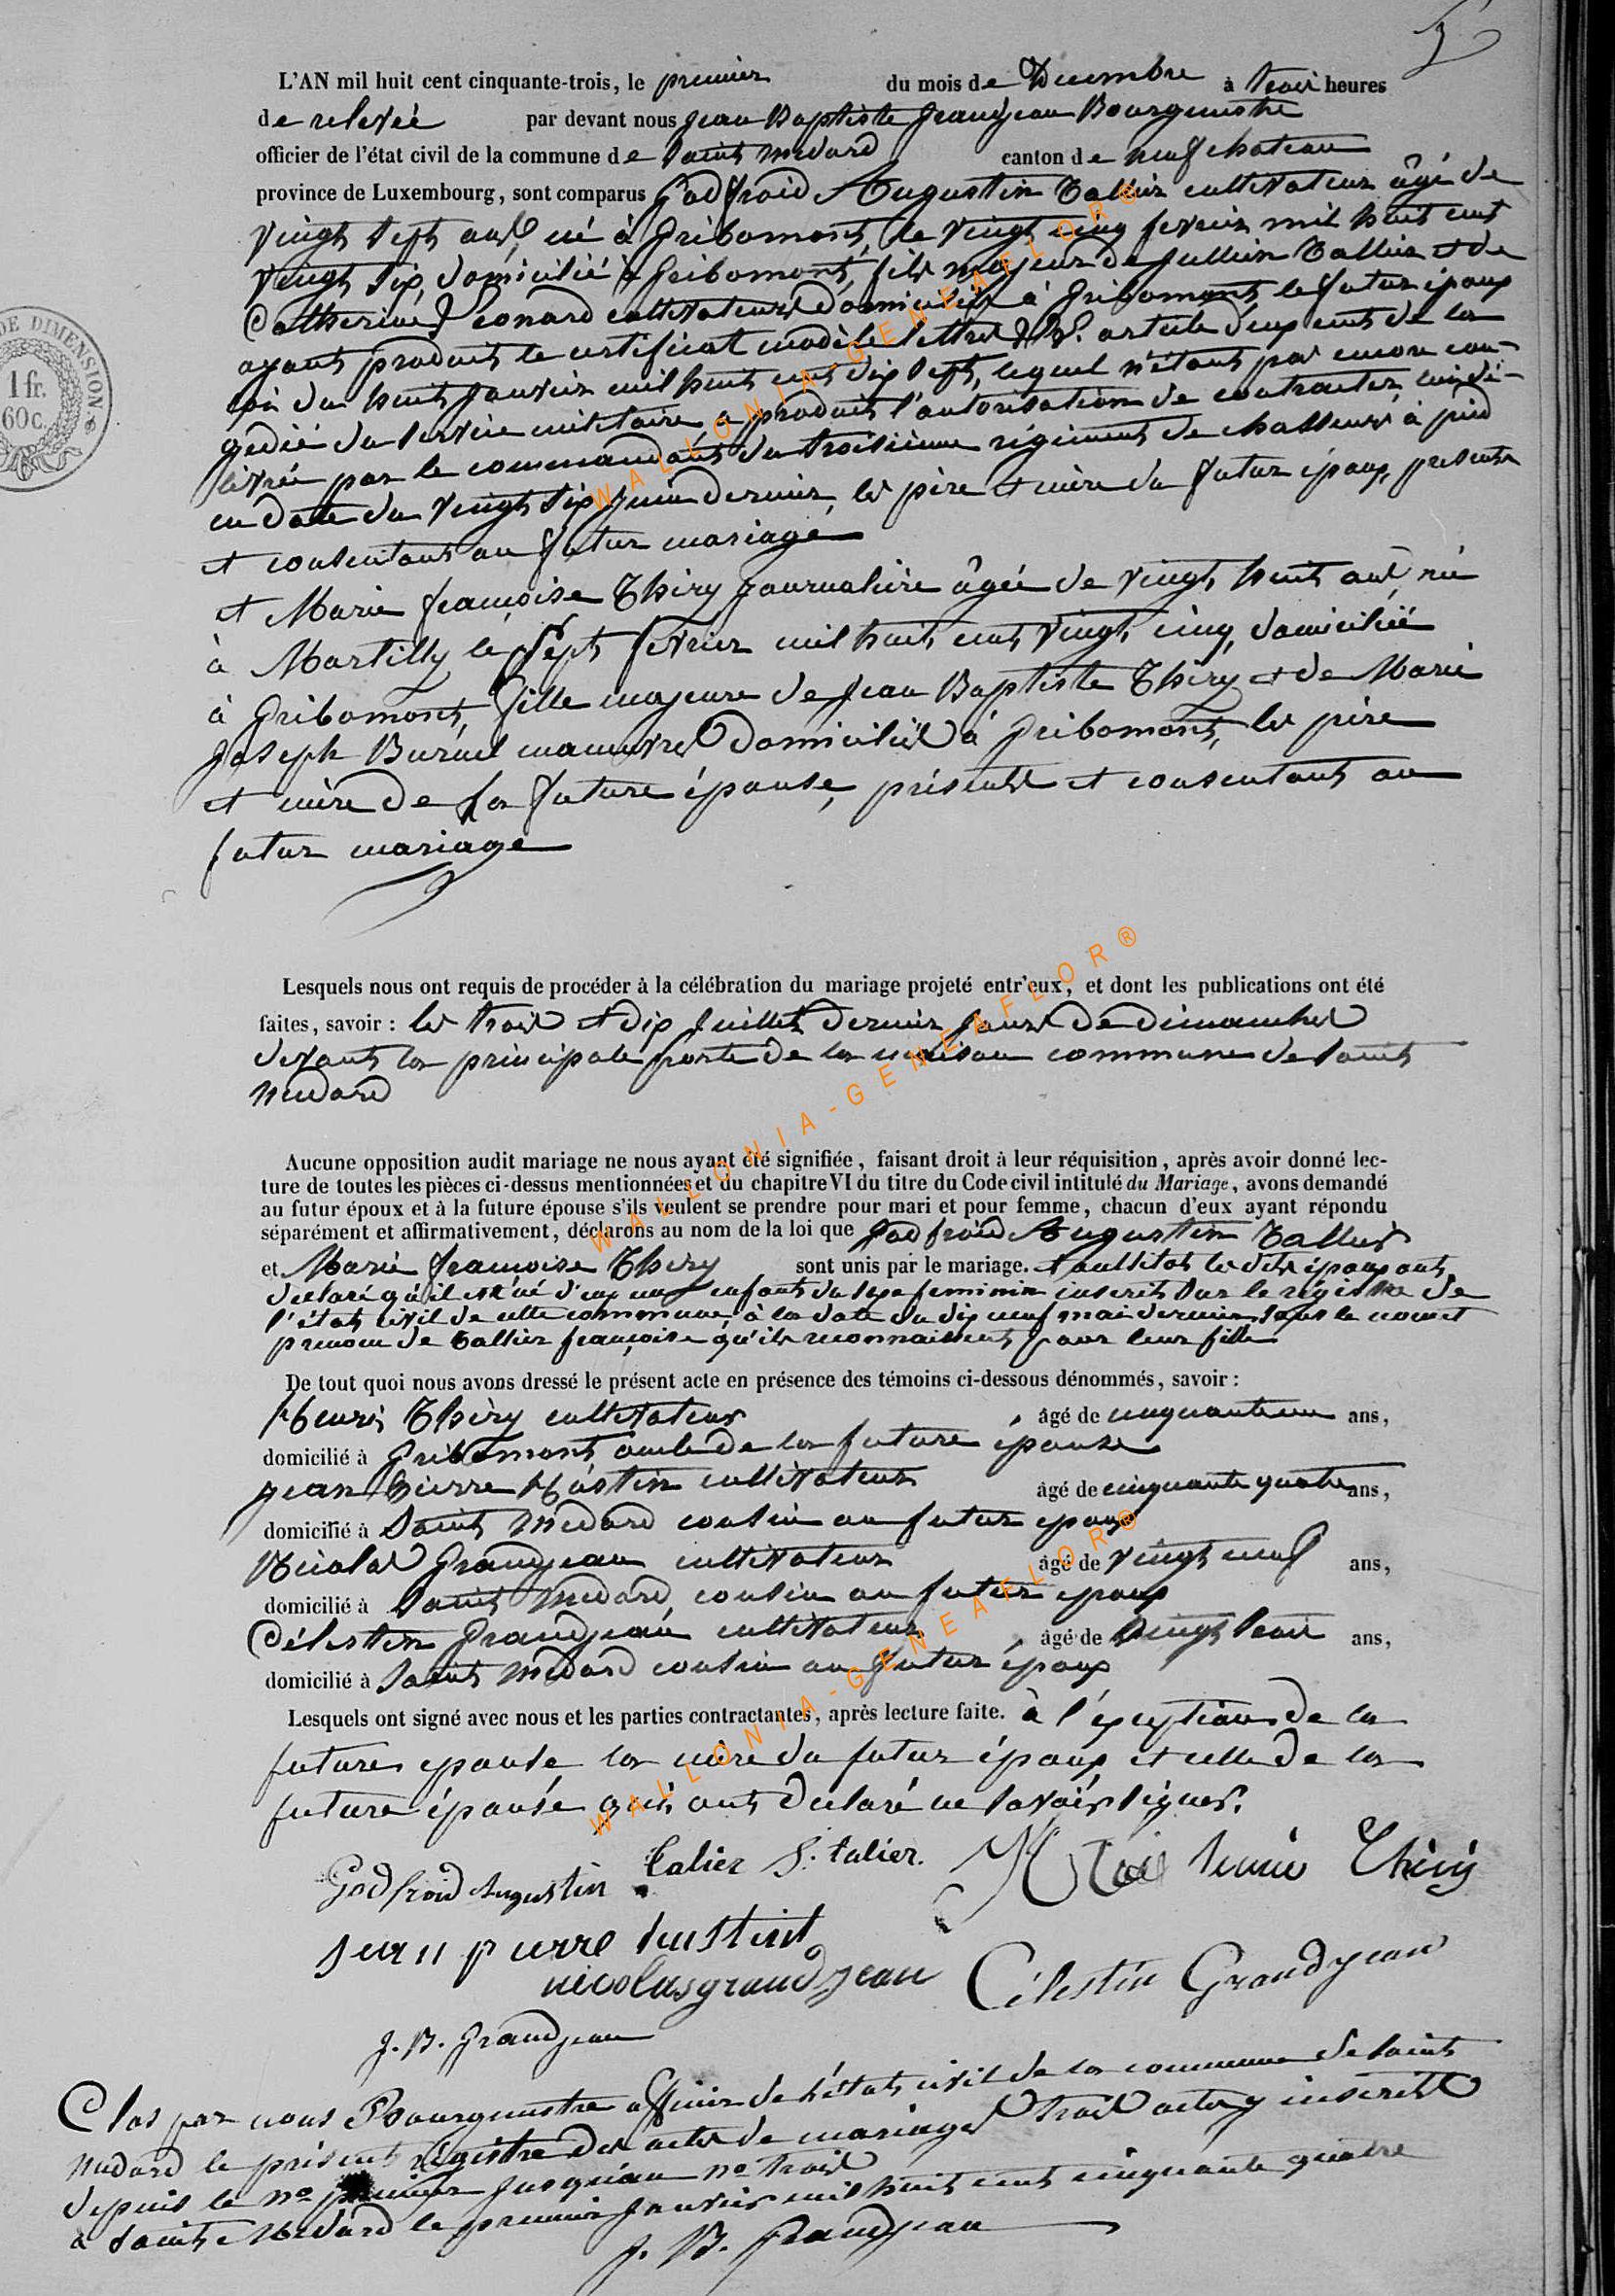 5
L'AN mil huit cent cinquante-trois, le premier du mois de Decembre à trois heures
de relevée par devant nous Jean Baptiste Grandjean Bourgmestre
officier de l'état civil de la commune de Saint Medard canton de neufchateau
province de Luxembourg, sont comparus Godfroid Augustin Tallier cultivateur âgé de
vingt sept ans, né à Gribomont, le vingt cinq fevrier mil huit cent
vingt six, domicilié à Gribomont, fils majeur de Jullien Tallier et de
Catherine Léonard cultivateurs domiciliés à Gribomont, le futur époux
ayant produit le certificat modèle lettre article deux cent de la
loi du huit Janvier mil huit cent dix sept, lequel n'étant pas encore con-
gédié du service militaire, a produit l'autorisation de contracter, lui dé-
livrée par le commandant du troisième régiment de chasseurs à pied
en date du vingt six Juin dernier, les père et mère du futur époux, présents
et consentant au futur mariage
et Marie françoise Thiry Journalière âgée de vingt huit ans née
à Martilly le Sept fevrier mil huit cent vingt cinq, domiciliée
à Gribomont, fille majeure de Jean Baptiste Thiry et de Marie
Joseph Burnel manuvres domiciliés à Gribomont, les père
et mère de la future épouse, présents et consentant au
futur mariage
Lesquels nous ont requis de procéder à la célébration du mariage projeté entr'eux, et dont les publications ont été
faites, savoir : les trois et dix Juillet dernier Jours de dimanches
devant la principale porte de la maison commune de Saint
Medard
Aucune opposition audit mariage ne nous ayant été signifiée, faisant droit à leur réquisition, après avoir donné lec-
ture de toutes les pièces ci-dessus mentionnées et du chapitre VI du titre du Code civil intitulé du Mariage, avons demandé
au futur époux et à la future épouse s'ils veulent se prendre pour mari et pour femme, chacun d'eux ayant répondu
séparément et affirmativement, déclarons au nom de la loi que Godfroid Augustin Tallier
et Marie françoise Thiry sont unis par le mariage. et aussitot les dits époux ont
declaré qu'il est né d'eux un enfant du sexe feminin inscrit sur le régistre de
l'état civil de cette commune, à la date du dix neuf mai dernier sous le nom et
prenom de Tallier françoise qu'ils reconnaissent pour leur fille
De tout quoi nous avons dressé le présent acte en présence des témoins ci-dessous dénommés, savoir :
Henri Thiry cultivateur âgé de cinquante un ans,
domicilié à Gribomont oncle de la future épouse
Jean Pierre Hustin cultivateur âgé de cinquante quatre ans,
domicilié à Saint Médard cousin au futur epoux
Nicolas Grandjean cultivateur âgé de vingt neuf ans,
domicilié à Saint Medard, cousin au futur epoux
Célestin Grandjean cultivateur âgé de vingt trois ans,
domicilié à Saint Medard cousin au futur époux
Lesquels ont signé avec nous et les parties contractantes, après lecture faite. à l'exception de la
future epouse la mère du futur époux et celle de la
future épouse qui ont declaré ne savoir signer.
Godfroid Augustin Talier S. talier. Thiry
Jean pierre hustin
nicolas grandjean Célestin Grandjean
J. B. Grandjean
Clos par nous Bourgmestre officier de l'état civil de la commune de Saint
Medard le présent régistre des actes de mariages trois actes y inscrits
depuis le no premier jusqu'au no trois
à Saint Medard le premier Janvier mil huit cent cinquante quatre
J. B. Grandjean
DE DIMENSION.
1 fr.
60 c.
WALLONIA-GENEAFLOR®
WALLONIA-GENEAFLOR®
WALLONIA-GENEAFLOR®